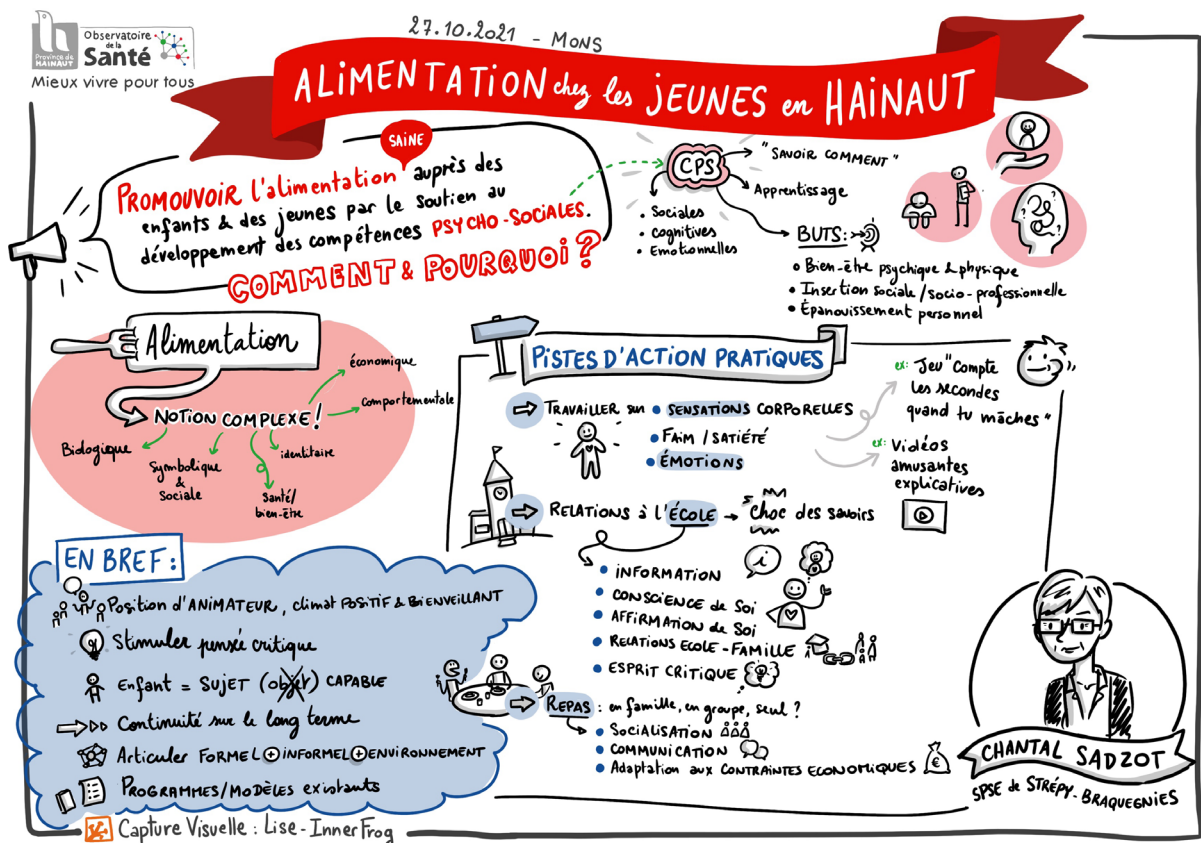 Province de
HAINAUT
Observatoire
de la
Santé
Mieux vivre pour tous
27.10.2021 - MONS
ALIMENTATION chez les JEUNES en HAINAUT
SAINE
PROMOUVOIR l'alimentation auprès des
enfants & des jeunes par le soutien au
développement des compétences PSYCHO-SOCIALES.
COMMENT & POURQUOI ?
CPS
"SAVOIR COMMENT"
Apprentissage
• Sociales
• cognitives
• Emotionnelles
BUTS:
• Bien-être psychique & physique
• Insertion sociale / socio-professionnelle
• Épanouissement personnel
Alimentation
NOTION COMPLEXE !
économique
comportementale
Biologique
Symbolique
&
Sociale
identitaire
Santé/
bien-être
PISTES D'ACTION PRATIQUES
TRAVAILLER sur • SENSATIONS CORPORELLES
• FAIM / SATIÉTÉ
• ÉMOTIONS
ex: Jeu "Compte
les secondes
quand tu mâches"
ex: Vidéos
amusantes
explicatives
RELATIONS à l'ÉCOLE → choc des savoirs
• INFORMATION
• CONSCIENCE de Soi
• AFFIRMATION de Soi
• RELATIONS ECOLE-FAMILLE
• ESPRIT CRITIQUE
REPAS : en famille, en groupe, seul ?
• SOCIALISATION
• COMMUNICATION
• Adaptation aux CONTRAINTES ECONOMIQUES
€
EN BREF :
Position d'ANIMATEUR, climat POSITIF & BIENVEILLANT
Stimuler pensée critique
Enfant = SUJET (objet) CAPABLE
Continuité sur le long terme
Articuler FORMEL + INFORMEL + ENVIRONNEMENT
PROGRAMMES/MODÈLES existants
CHANTAL SADZOT
SPSE de STRÉPY-BRAQUEGNIES
Capture Visuelle : Lise-InnerFrog